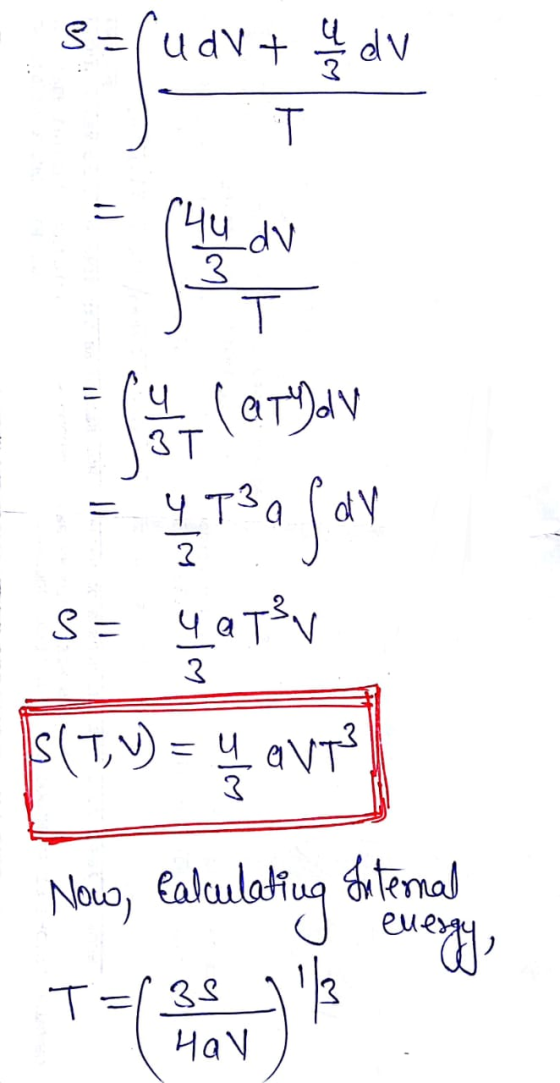 S = ∫ (u dV + u/3 dV) / T
= ∫ (4u/3 dV) / T
= ∫ 4/3T (aT⁴) dV
= 4/3 T³a ∫ dV
S = 4/3 aT³V
S(T,V) = 4/3 aVT³
Now, Calculating Internal
energy,
T = (3S/4aV)^1/3